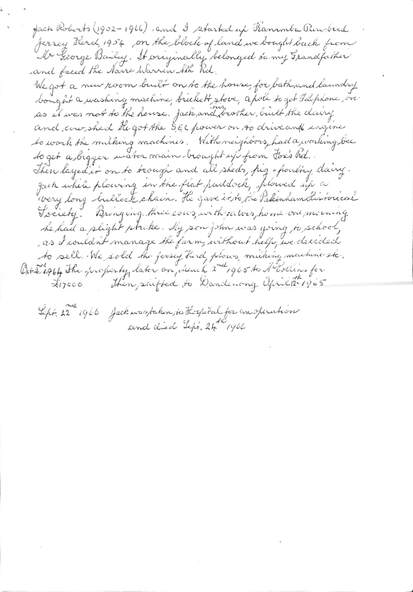 Jack Roberts (1902-1966) and I started up Kanumba Purebred
Jersey Herd, 1954 on the block of land we bought back from
Mr George Baily. It originally belonged to my Grandfather
and faced the Narre Warren Nth Rd.
We got a new room built on to the house, for bath and laundry
bought a washing machine, brickett stove, a pole to get Telephone on
as it was not to the house. Jack, and my brother, built the dairy
and cow shed. He got the SEC power on to drive an engine
to work the milking machines. With neighbors, had a working bee
to get a bigger water main brought up from Fox's Rd.
Then layed it on to trough and all sheds, pig & poultry dairy.
Jack when plowing in the first paddock, plowed up a
very long bullock chain. He gave it to the Pakenham Historical
Society. Bringing three cows, with calves, home one morning
he had a slight stroke. My son John was going to school,
as I couldn't manage the farm, without help, we decided
to sell. We sold the Jersey Herd, plows, milking machine etc.
Oct 2nd 1964 The property later on, March 2nd 1965 to Mr Collins for
£17000 Then, shifted to Dandenong April 12th 1965
Sept. 22nd 1966 Jack was taken, to Hospital for an operation
and died Sept. 24th 1966